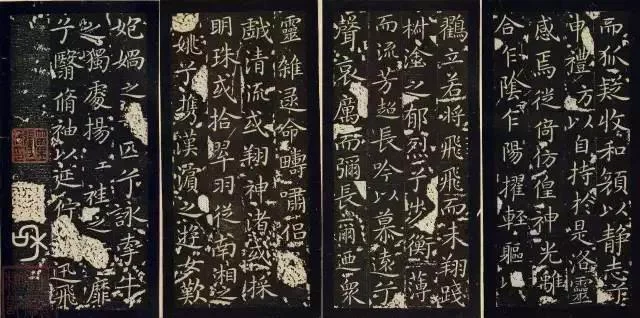 而狐疑收和顔以静志兮
申禮防以自持於是洛靈
感焉徙倚仿偟神光離
合乍陰乍陽擢輕軀以
鸖立若將飛飛而未翔踐
椒塗之郁烈兮步衡薄
而流芳超長吟以慕遠兮
聲哀厲而彌長爾迺衆
靈雜遝命疇嘯侶
戲清流或翔神渚或採
明珠或拾翠羽從南湘之
姚兮攜漢濱之遊女歎
媧之匹兮詠牽牛
之獨處揚袿之靡
兮翳脩袖以延佇迅飛